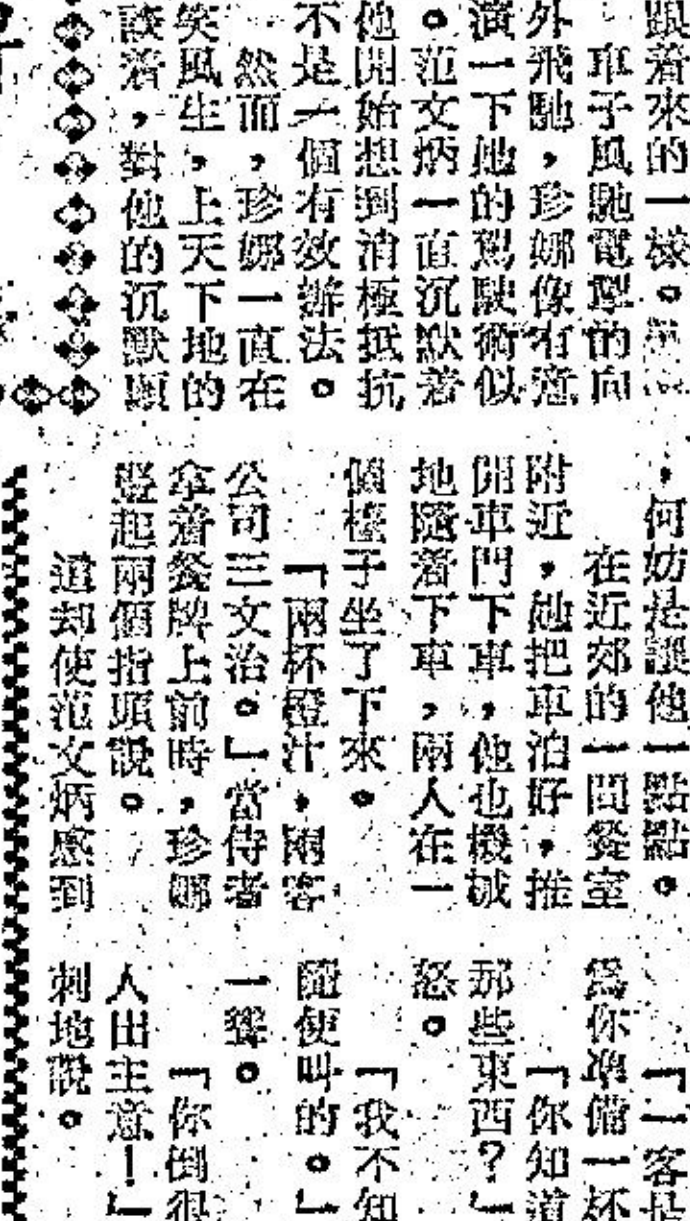 跟着來的一樣。
車子風馳電掣的向
外飛馳，珍娜像有意
演一下她的駕駛術似
。范文炳一直沉默着
他開始想到消極抵抗
不是一個有效辦法。
然而，珍娜一直在
笑風生，上天下地的
談着，對他的沉默顯
，何妨是讓他一點點。
在近郊的一間餐室
附近，她把車泊好，推
開車門下車，他也機械
地隨着下車，兩人在一
個檯子坐了下來。
「兩杯橙汁，兩客
公司三文治。」當侍者
拿着餐牌上前時，珍娜
豎起兩個指頭說。
這却使范文炳感到
「一客是
爲你準備一杯
「你知道
那些東西？」
怒。
「我不知
隨便叫的。」
一聲。
「你倒很
人出主意！」
刺地說。